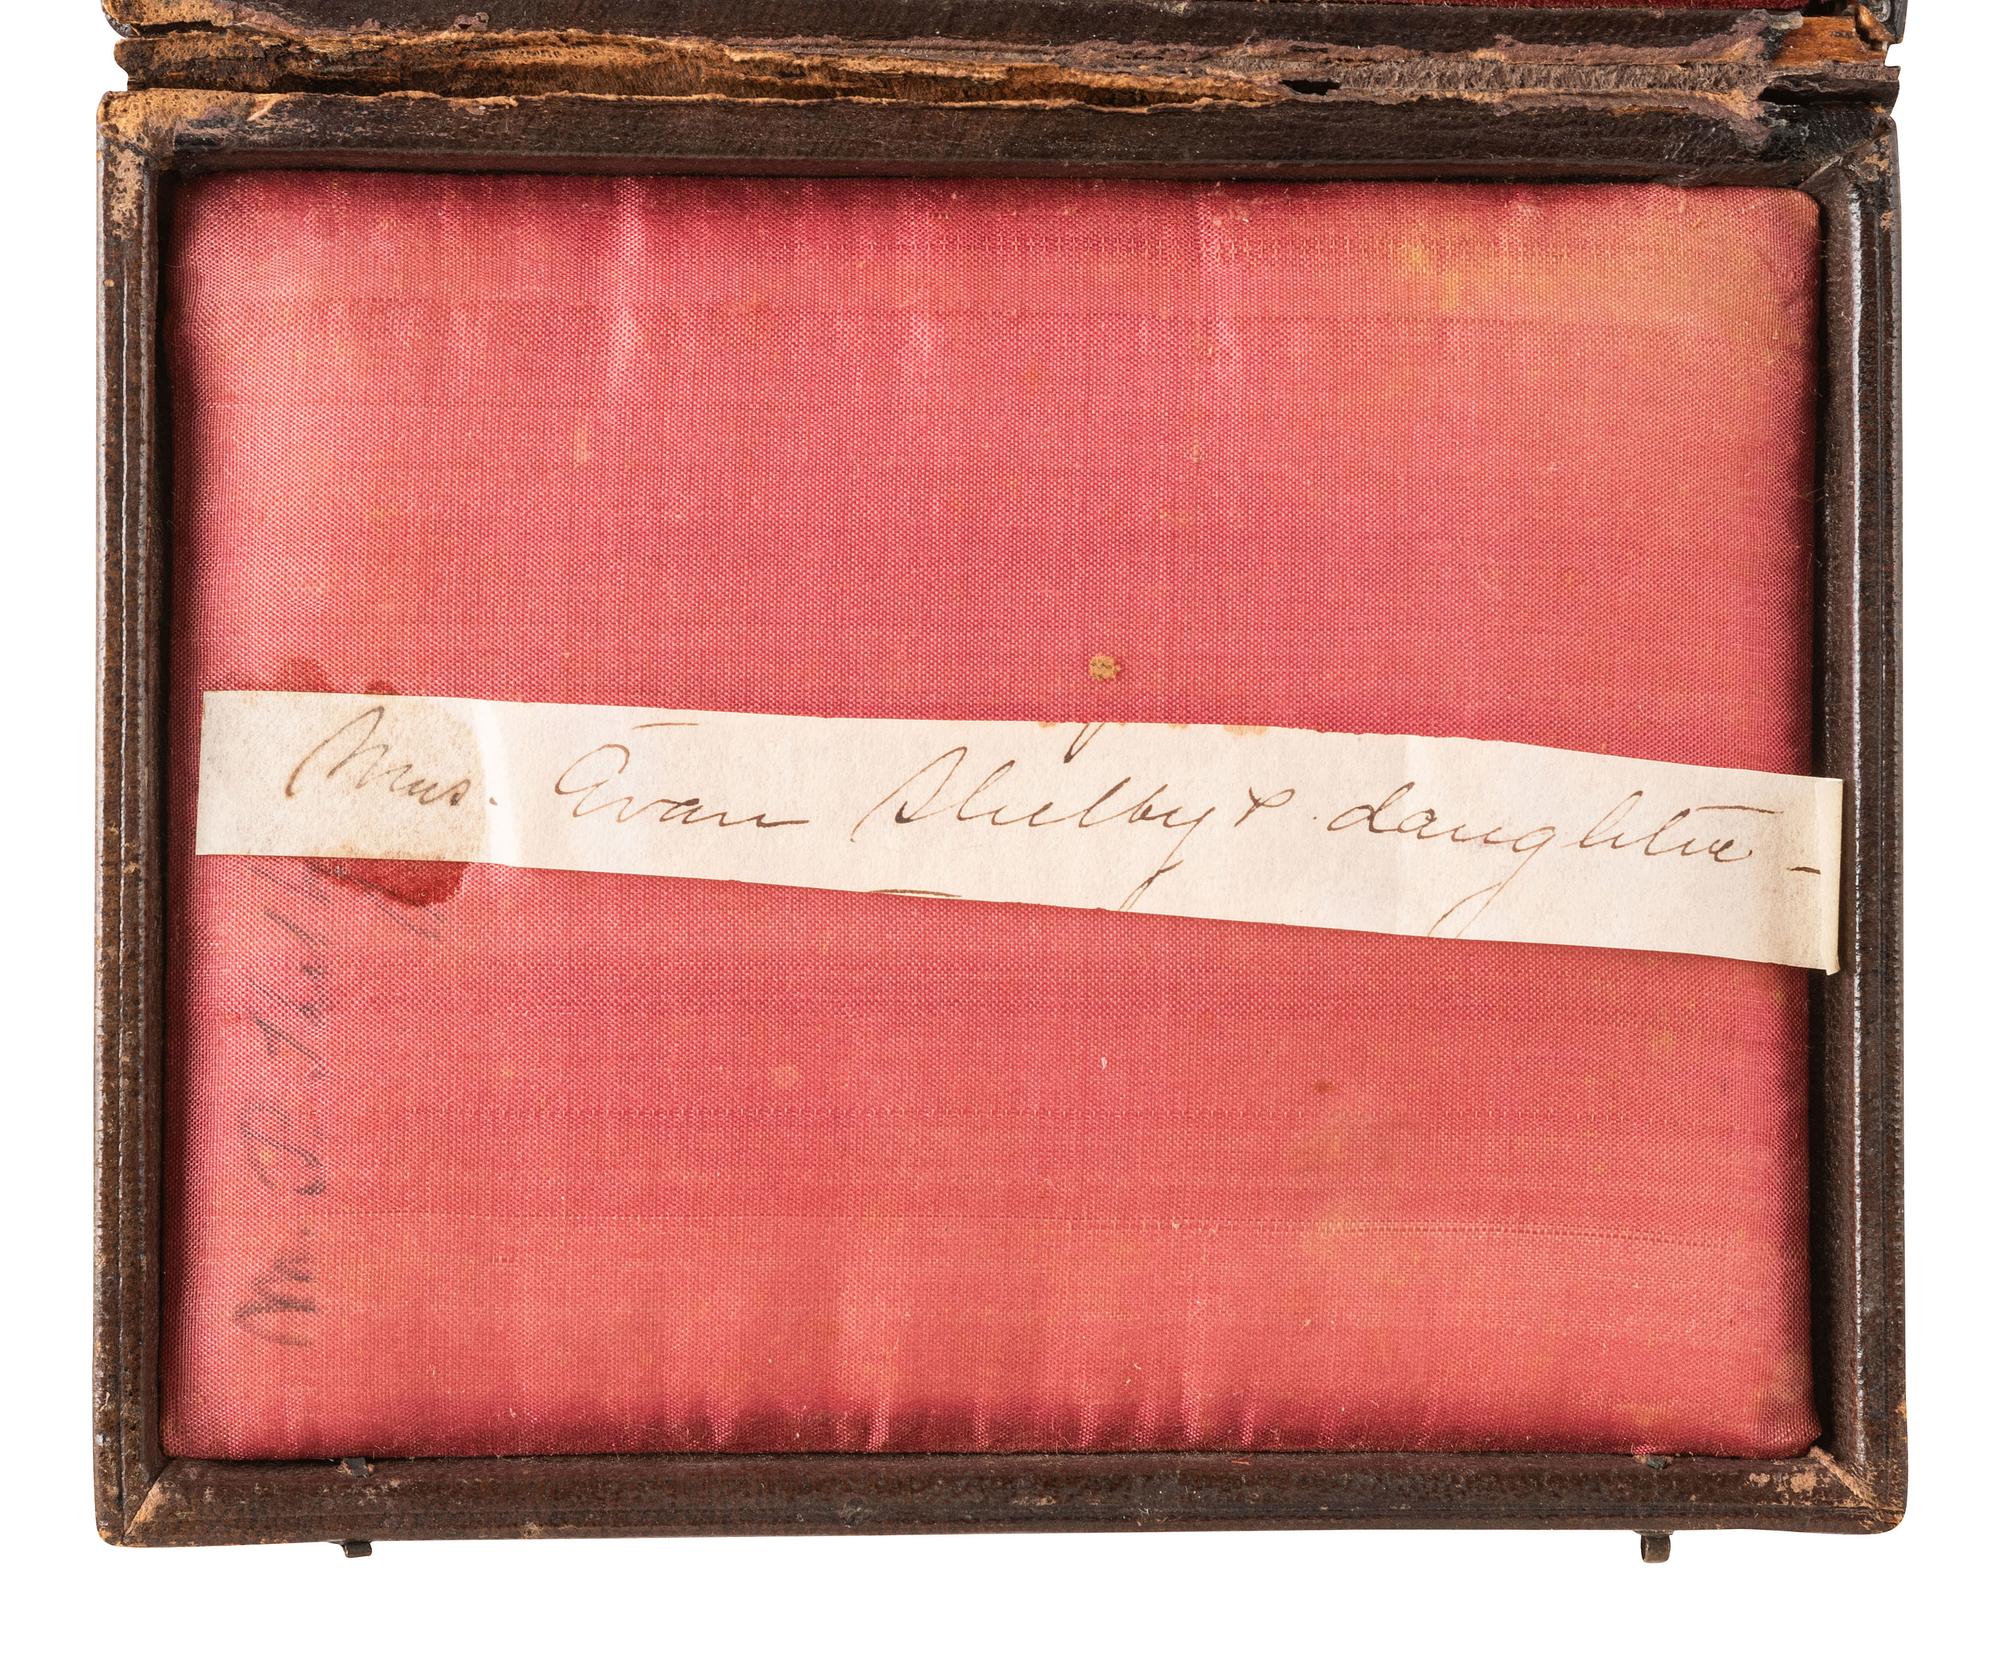 Mrs. Evan Shelby & daughter -
M. P. Shelby